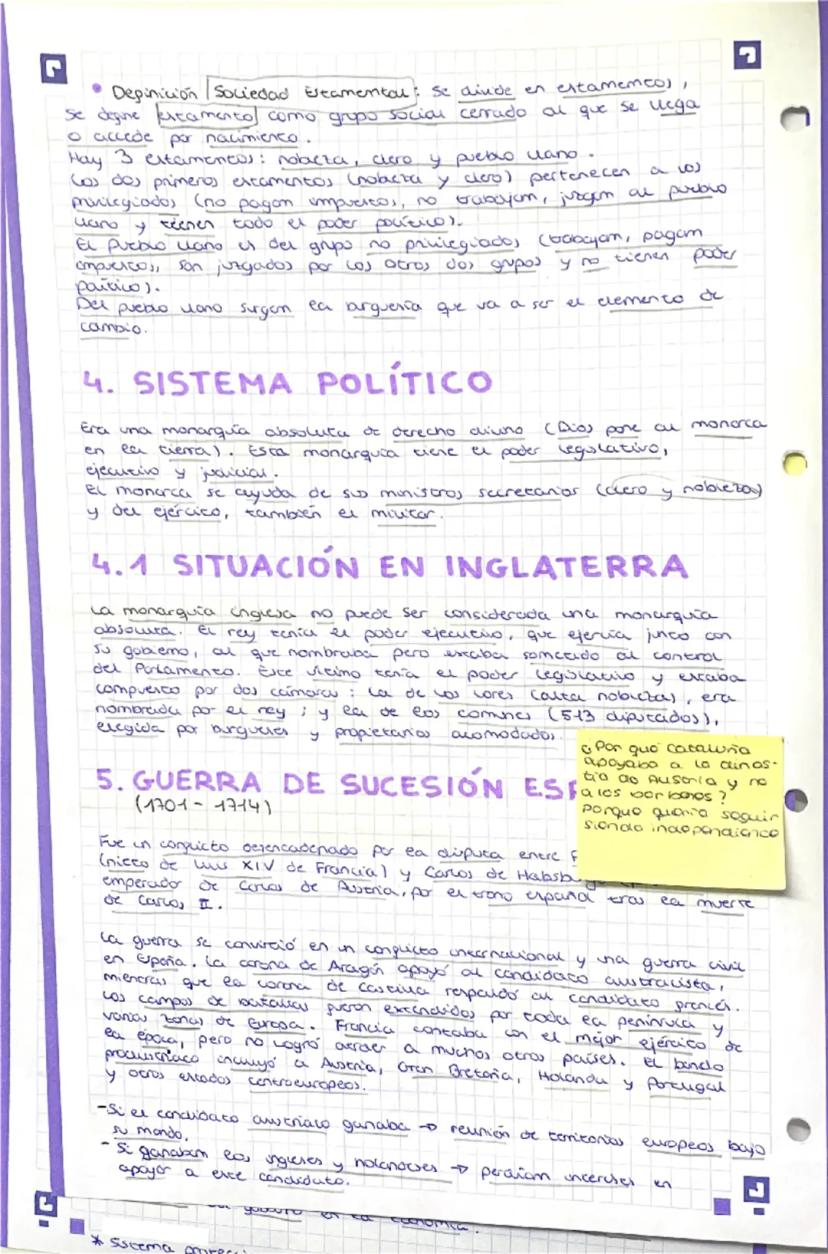 • Definición Sociedad Estamental: se divide en estamentos,
se define estamento como grupo social cerrado al que se llega
o accede por nacimiento.
Hay 3 estamentos: nobleza, clero y pueblo llano.
Los dos primeros estamentos (nobleza y clero) pertenecen a los
privilegiados (no pagan impuestos, no trabajan, juzgan al pueblo
llano y tienen todo el poder político).
El Pueblo llano es del grupo no privilegiados (trabajan, pagam
impuestos, son juzgados por los otros dos grupos y no tienen poder
político).
Del pueblo llano surgen la burguesía que va a ser el elemento de
cambio.
4. SISTEMA POLÍTICO
Era una monarquía absoluta de derecho divino (Dios pone al monarca
en la tierra). Esta monarquía tiene el poder legislativo,
ejecutivo y judicial.
El monarca se ayuda de sus ministros, secretarios (clero y nobleza)
y del ejército, también el militar.
4.1 SITUACIÓN EN INGLATERRA
La monarquía inglesa no puede ser considerada una monarquía
absoluta. El rey tenía el poder ejecutivo, que ejercía junto con
su gobierno, al que nombraba pero estaba sometido al control
del Parlamento. Este último tenía el poder legislativo y estaba
compuesto por dos cámaras: la de los lores (alta nobleza), era
nombrada por el rey; y la de los comunes (513 diputados),
elegida por burgueses y propietarios acomodados.
5. GUERRA DE SUCESIÓN ESP
(1701 - 1714)
¿Por qué Cataluña
apoyaba a la dinas-
tía de Austria y no
a los borbones?
porque quería seguir
siendo independiente
Fue un conflicto desencadenado por la disputa entre F
(nieto de Luis XIV de Francia) y Carlos de Habsbu
emperador de Carlos de Austria, por el trono español tras la muerte
de Carlos II.
La guerra se convirtió en un conflicto internacional y una guerra civil
en España. La corona de Aragón apoyó al candidato austracista,
mientras que la corona de Castilla respaldó al candidato francés.
Los campos de batallas fueron extendidos por toda la península y
varias zonas de Europa. Francia contaba con el mejor ejército de
la época, pero no logró atraer a muchos otros países. El bando
proaustriaco incluyó a Austria, Gran Bretaña, Holanda y Portugal
y otros estados centroeuropeos.
- Si el candidato austriaco ganaba → reunión de territorios europeos bajo
su mando.
- Si ganaban los ingleses y holandeses → perdían intereses en
apoyar a este candidato.
en la economía.
* Sistema